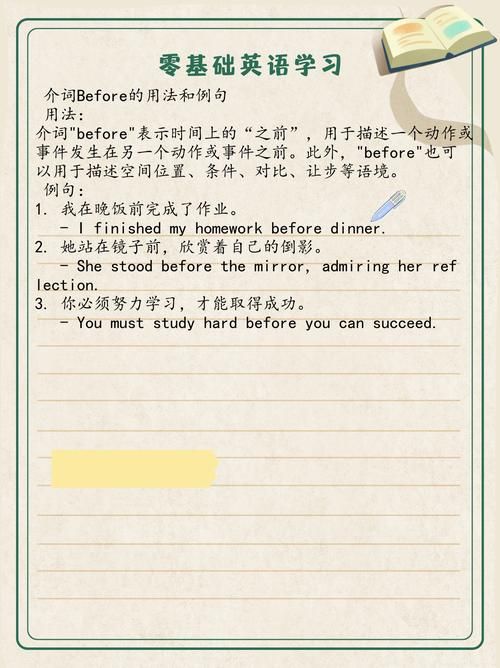 零基础英语学习
介词Before的用法和例句
用法:
介词"before"表示时间上的“之前”,用于描述一个动作或
事件发生在另一个动作或事件之前。此外,"before"也可
以用于描述空间位置、条件、对比、让步等语境。
例句:
1. 我在晚饭前完成了作业。
- I finished my homework before dinner.
2. 她站在镜子前,欣赏着自己的倒影。
- She stood before the mirror, admiring her ref
lection.
3. 你必须努力学习,才能取得成功。
- You must study hard before you can succeed.